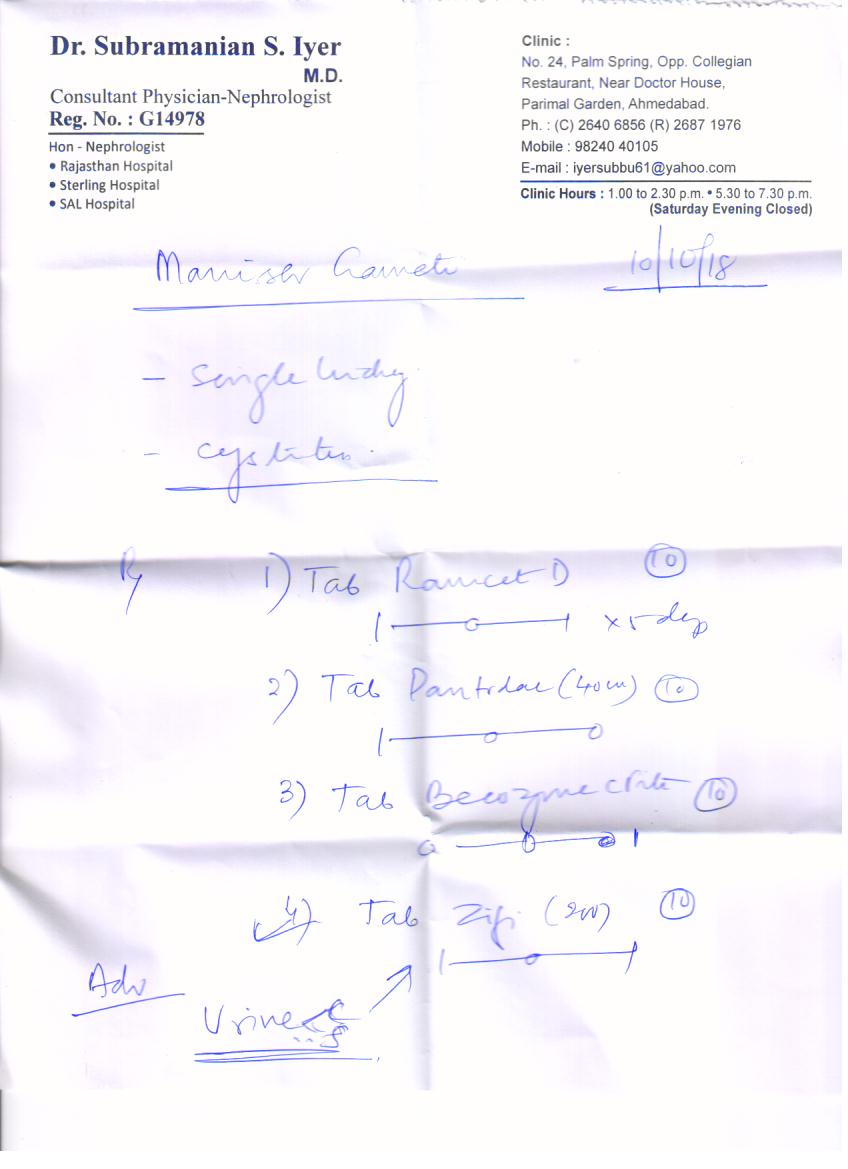 Dr. Subramanian S. Iyer
M.D.
Consultant Physician-Nephrologist
Reg. No. : G14978
Hon - Nephrologist
• Rajasthan Hospital
• Sterling Hospital
• SAL Hospital
Clinic :
No. 24, Palm Spring, Opp. Collegian
Restaurant, Near Doctor House,
Parimal Garden, Ahmedabad.
Ph. : (C) 2640 6856 (R) 2687 1976
Mobile : 98240 40105
E-mail : iyersubbu61@yahoo.com
Clinic Hours : 1.00 to 2.30 p.m. • 5.30 to 7.30 p.m.
(Saturday Evening Closed)
10/10/18
- Single kidney
- cystitis
Rx 1) Tab D 10
1 — 0 — 1 x 5 days
2) Tab Pantodac (40mg) 10
1 — 0 — 0
3) Tab Becozyme C Forte 10
0 — 0 — 1
4) Tab Zifi (200) 10
1 — 0 — 1
Adv
Urine C/S